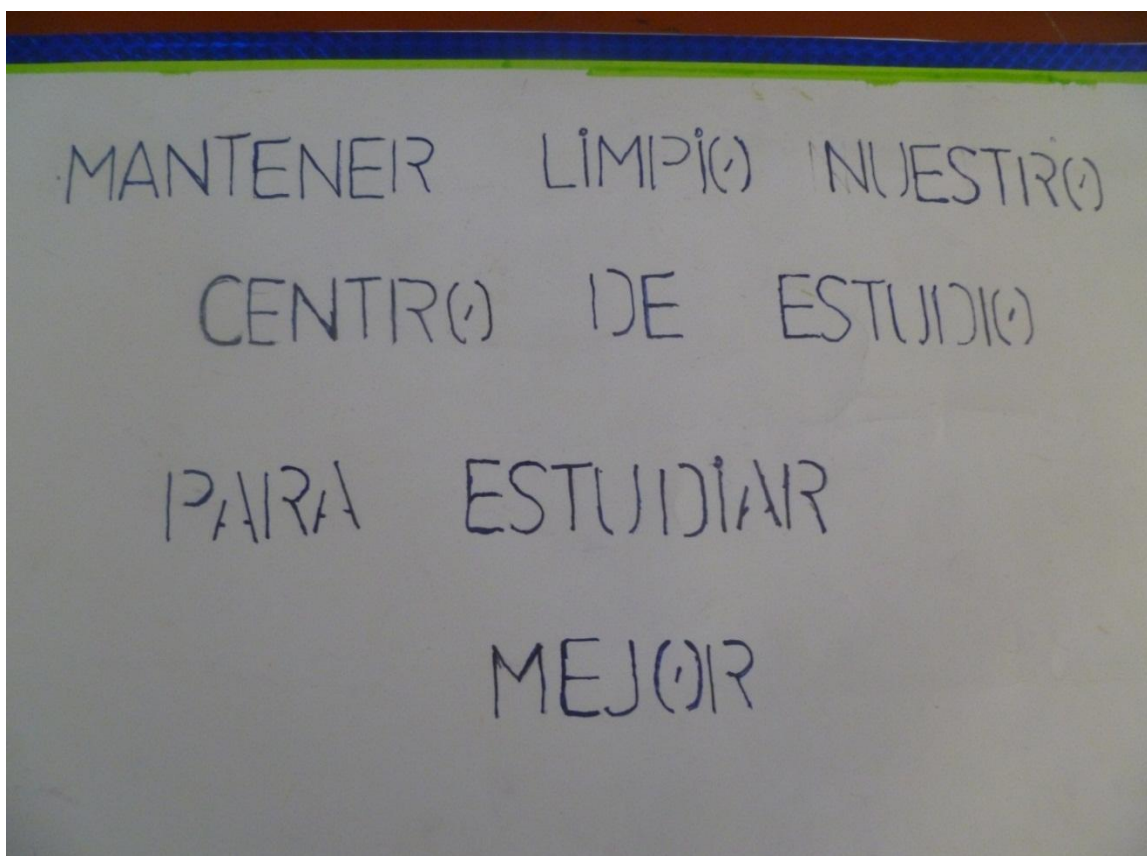 MANTENER LIMPIO NUESTRO
CENTRO DE ESTUDIO
PARA ESTUDIAR
MEJOR